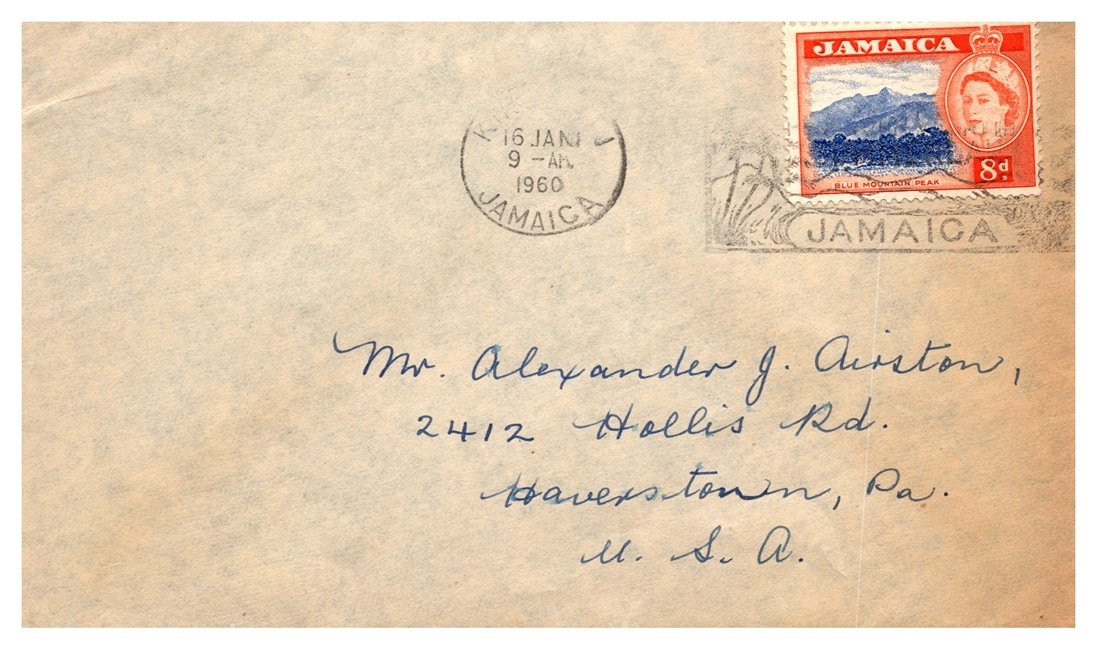 JAMAICA
BLUE MOUNTAIN PEAK
8d
16 JAN
9 - AM
1960
JAMAICA
JAMAICA
Mr. Alexander J. Airston,
2412 Hollis Rd.
Haverstown, Pa.
U. S. A.